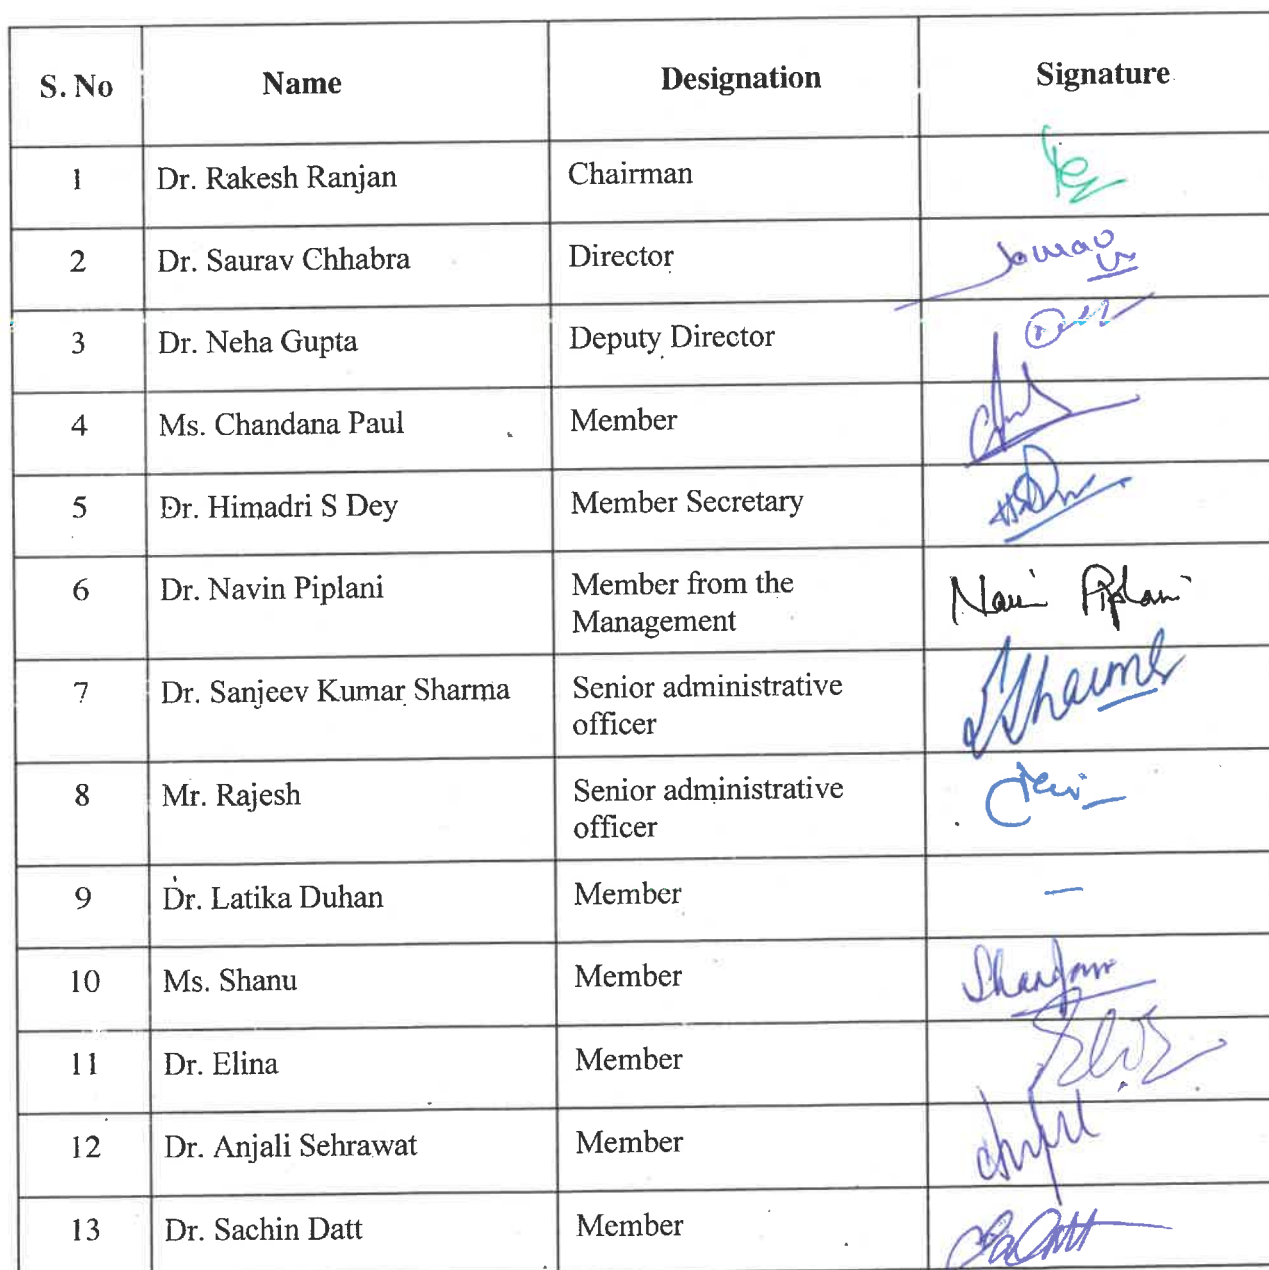 S. No Name Designation Signature
1 Dr. Rakesh Ranjan Chairman
2 Dr. Saurav Chhabra Director
3 Dr. Neha Gupta Deputy Director
4 Ms. Chandana Paul Member
5 Dr. Himadri S Dey Member Secretary
6 Dr. Navin Piplani Member from the
Management Navin Piplani
7 Dr. Sanjeev Kumar Sharma Senior administrative
officer SSharma
8 Mr. Rajesh Senior administrative
officer
9 Dr. Latika Duhan Member –
10 Ms. Shanu Member
11 Dr. Elina Member
12 Dr. Anjali Sehrawat Member
13 Dr. Sachin Datt Member